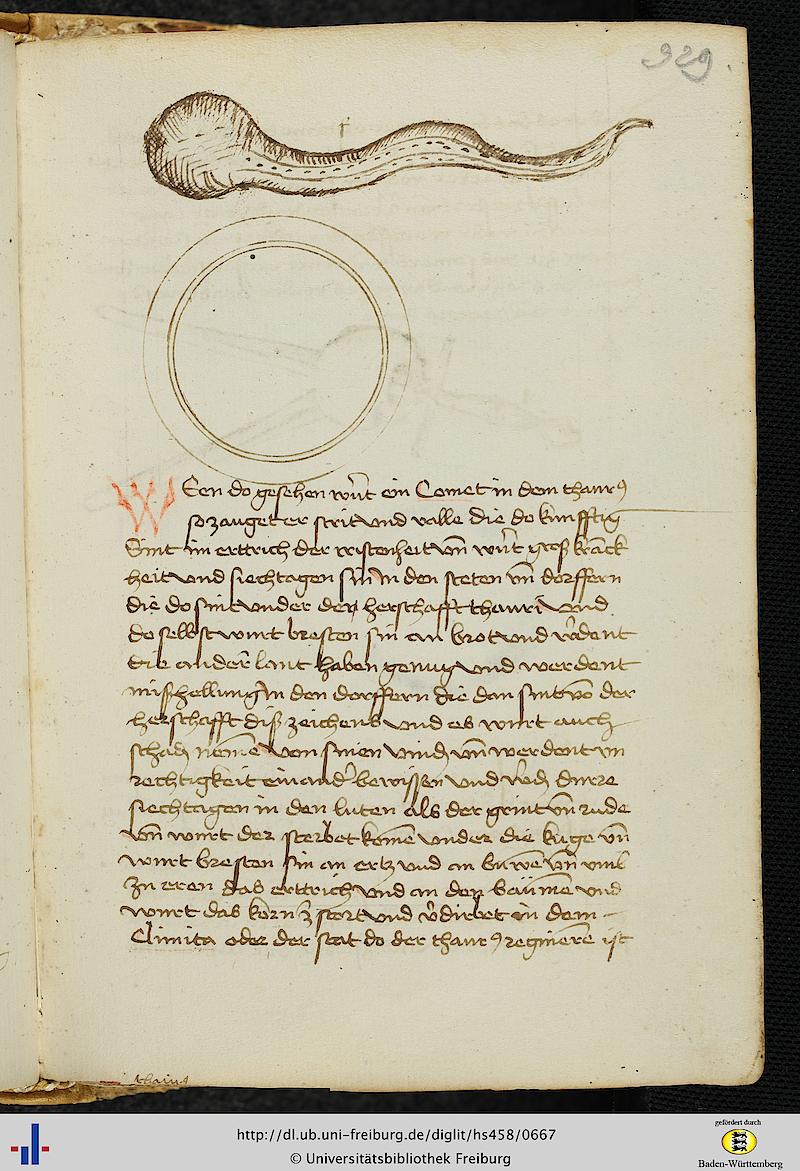 329.
Wen do gesehen wirt ein Comet in dem thaurꝰ
so zauget er strit und valle die do kunfftig
Sint im ertrich der cristenheit vn̄ wirt groß kranck
heit und siechtagen sin in den steten vn̄ dorffern
die do sint under der herschafft thauri und
do selbst wirt bresten sin an brot und werdent
die ander lant haben genug und werdent
mißhellung in den dorffern die dan sint von der
herschafft diß zeichens und es wirt auch
schad nemē von sinen vind vn̄ werdent vn
rechtigkeit einand bewissen und durre
siechtagen in den luten als der grint vn̄ rude
vn̄ wirt der sterbet komē under die kuge vn̄
wirt bresten sin an ertz und an buwē vn̄ umb
zu eren das ertrich und an den bäumē und
wirt das korn zstort und vdirbet in dem
Climita oder der stat do der thaurꝰ reginiere ist
http://dl.ub.uni-freiburg.de/diglit/hs458/0667
© Universitätsbibliothek Freiburg
gefördert durch
Baden-Württemberg